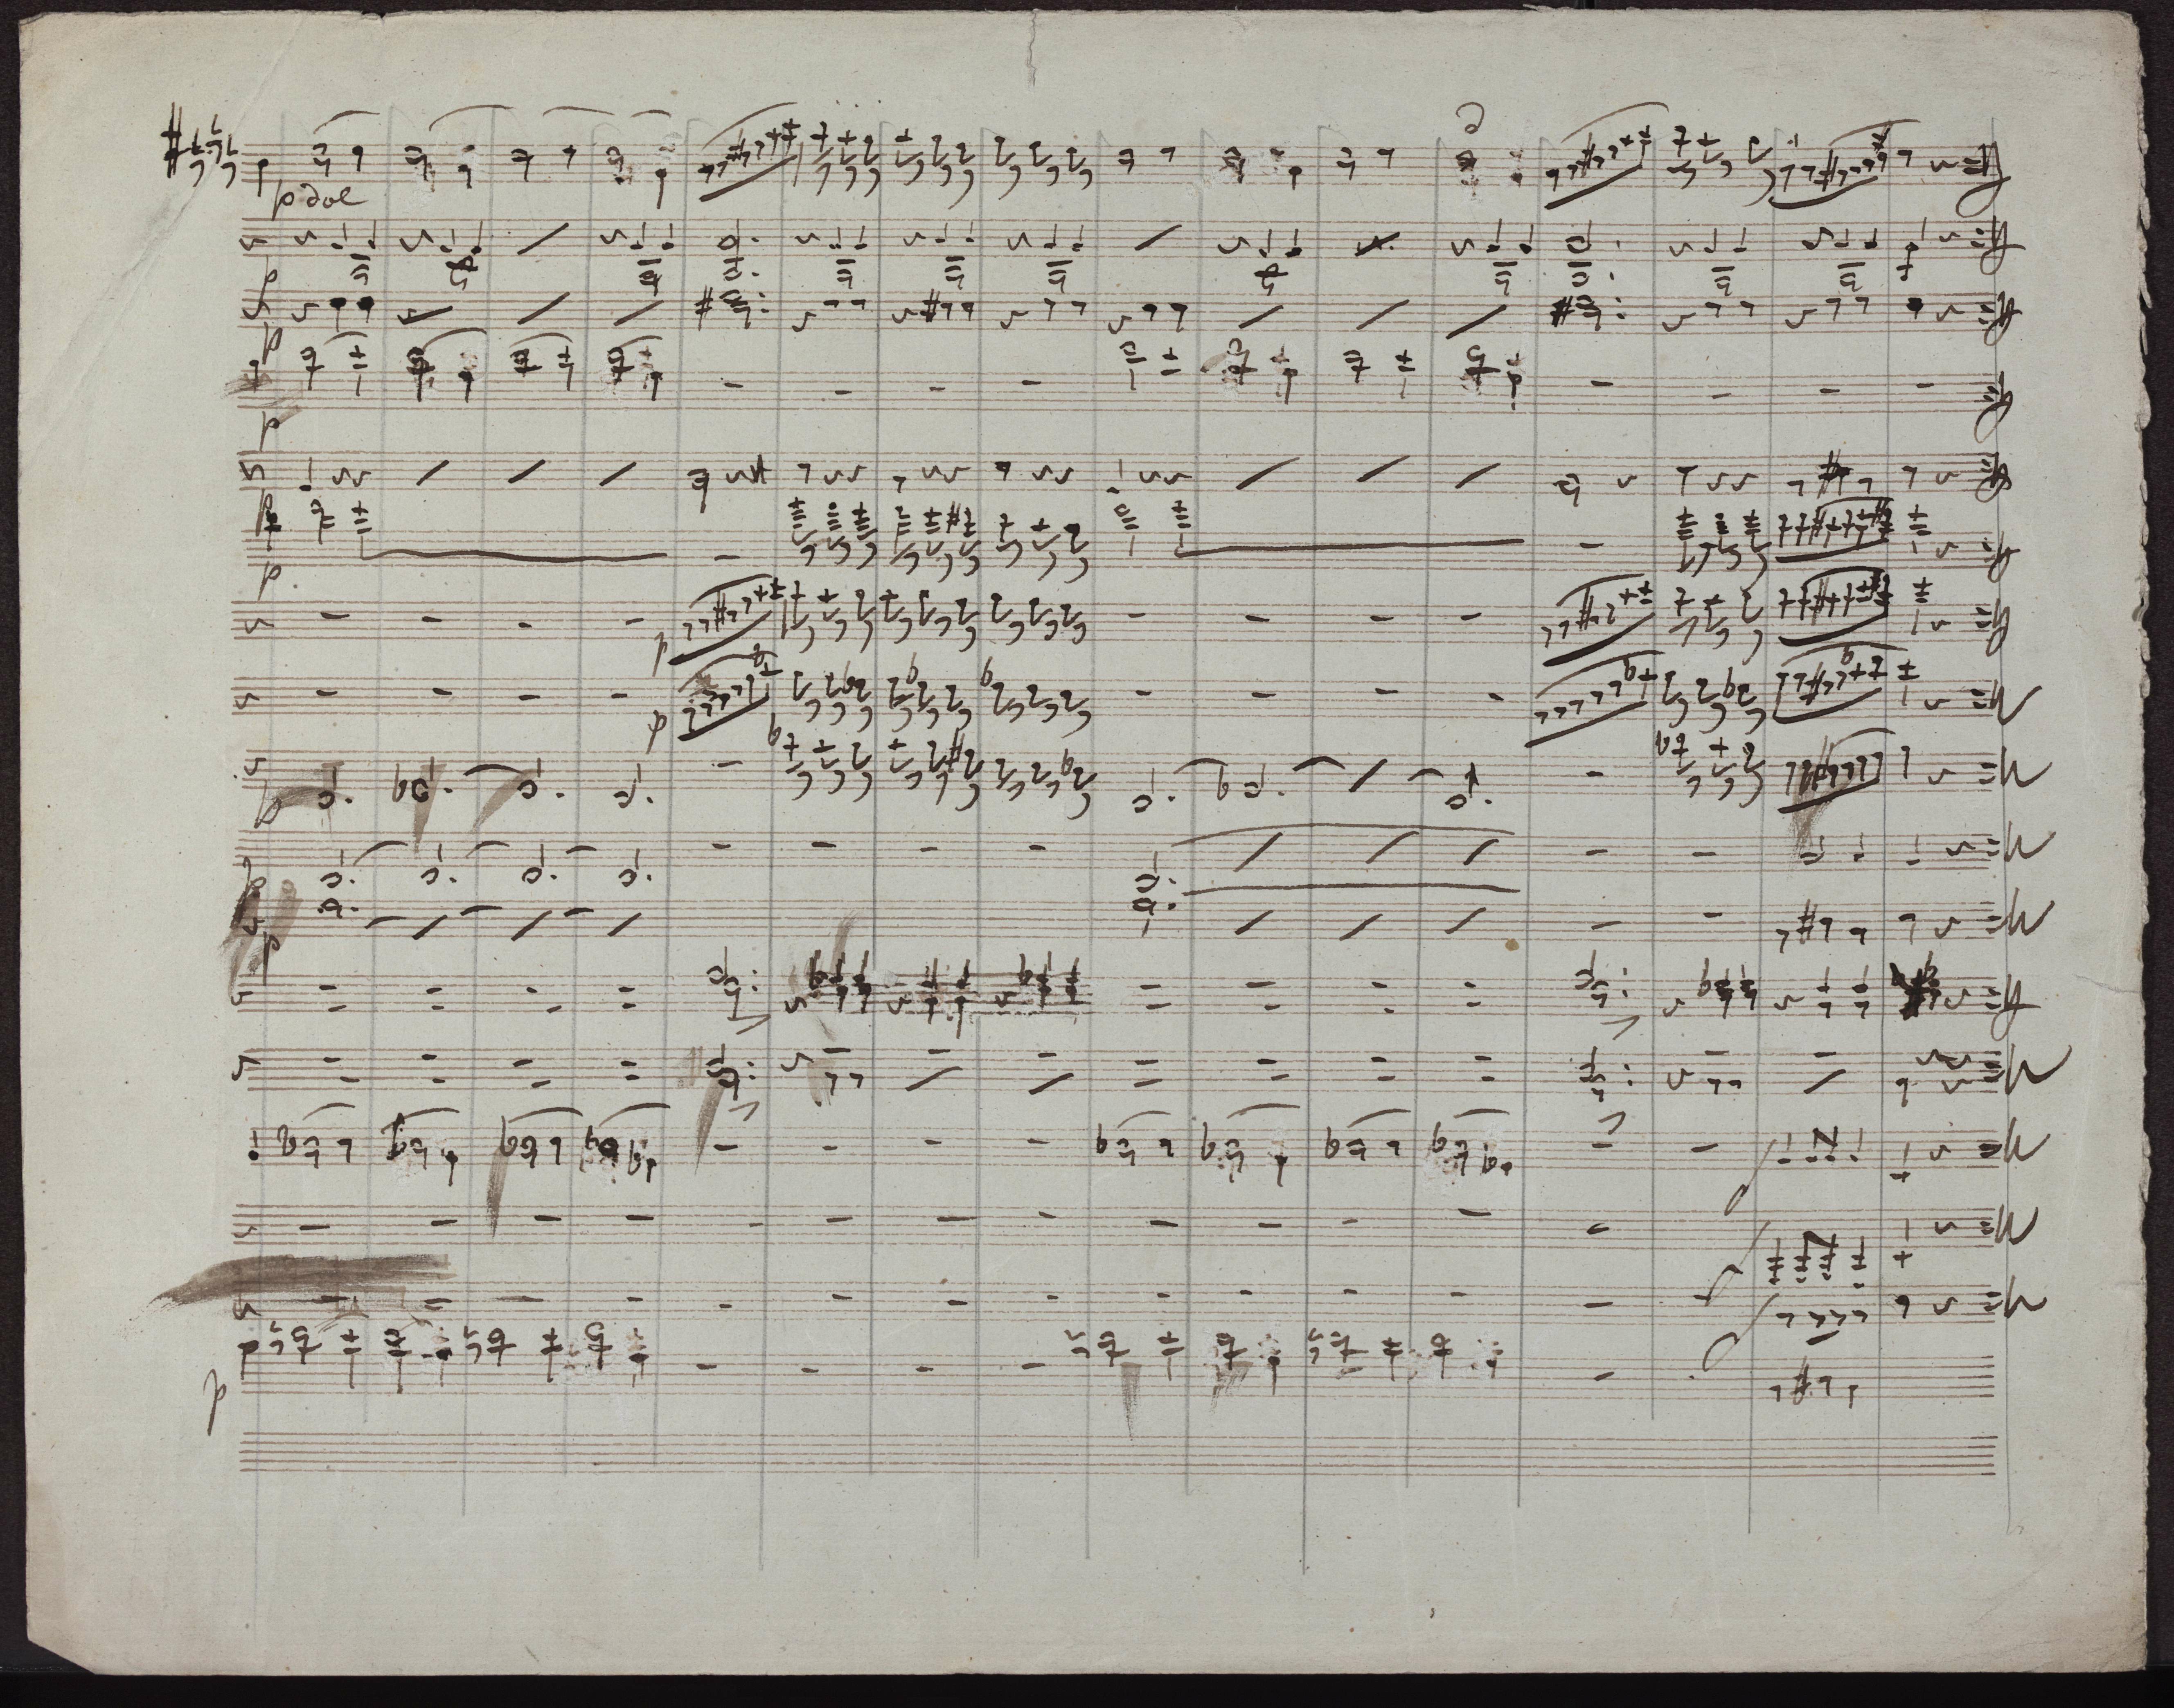 p dol
p
p
p
p
p
p
p
p
p